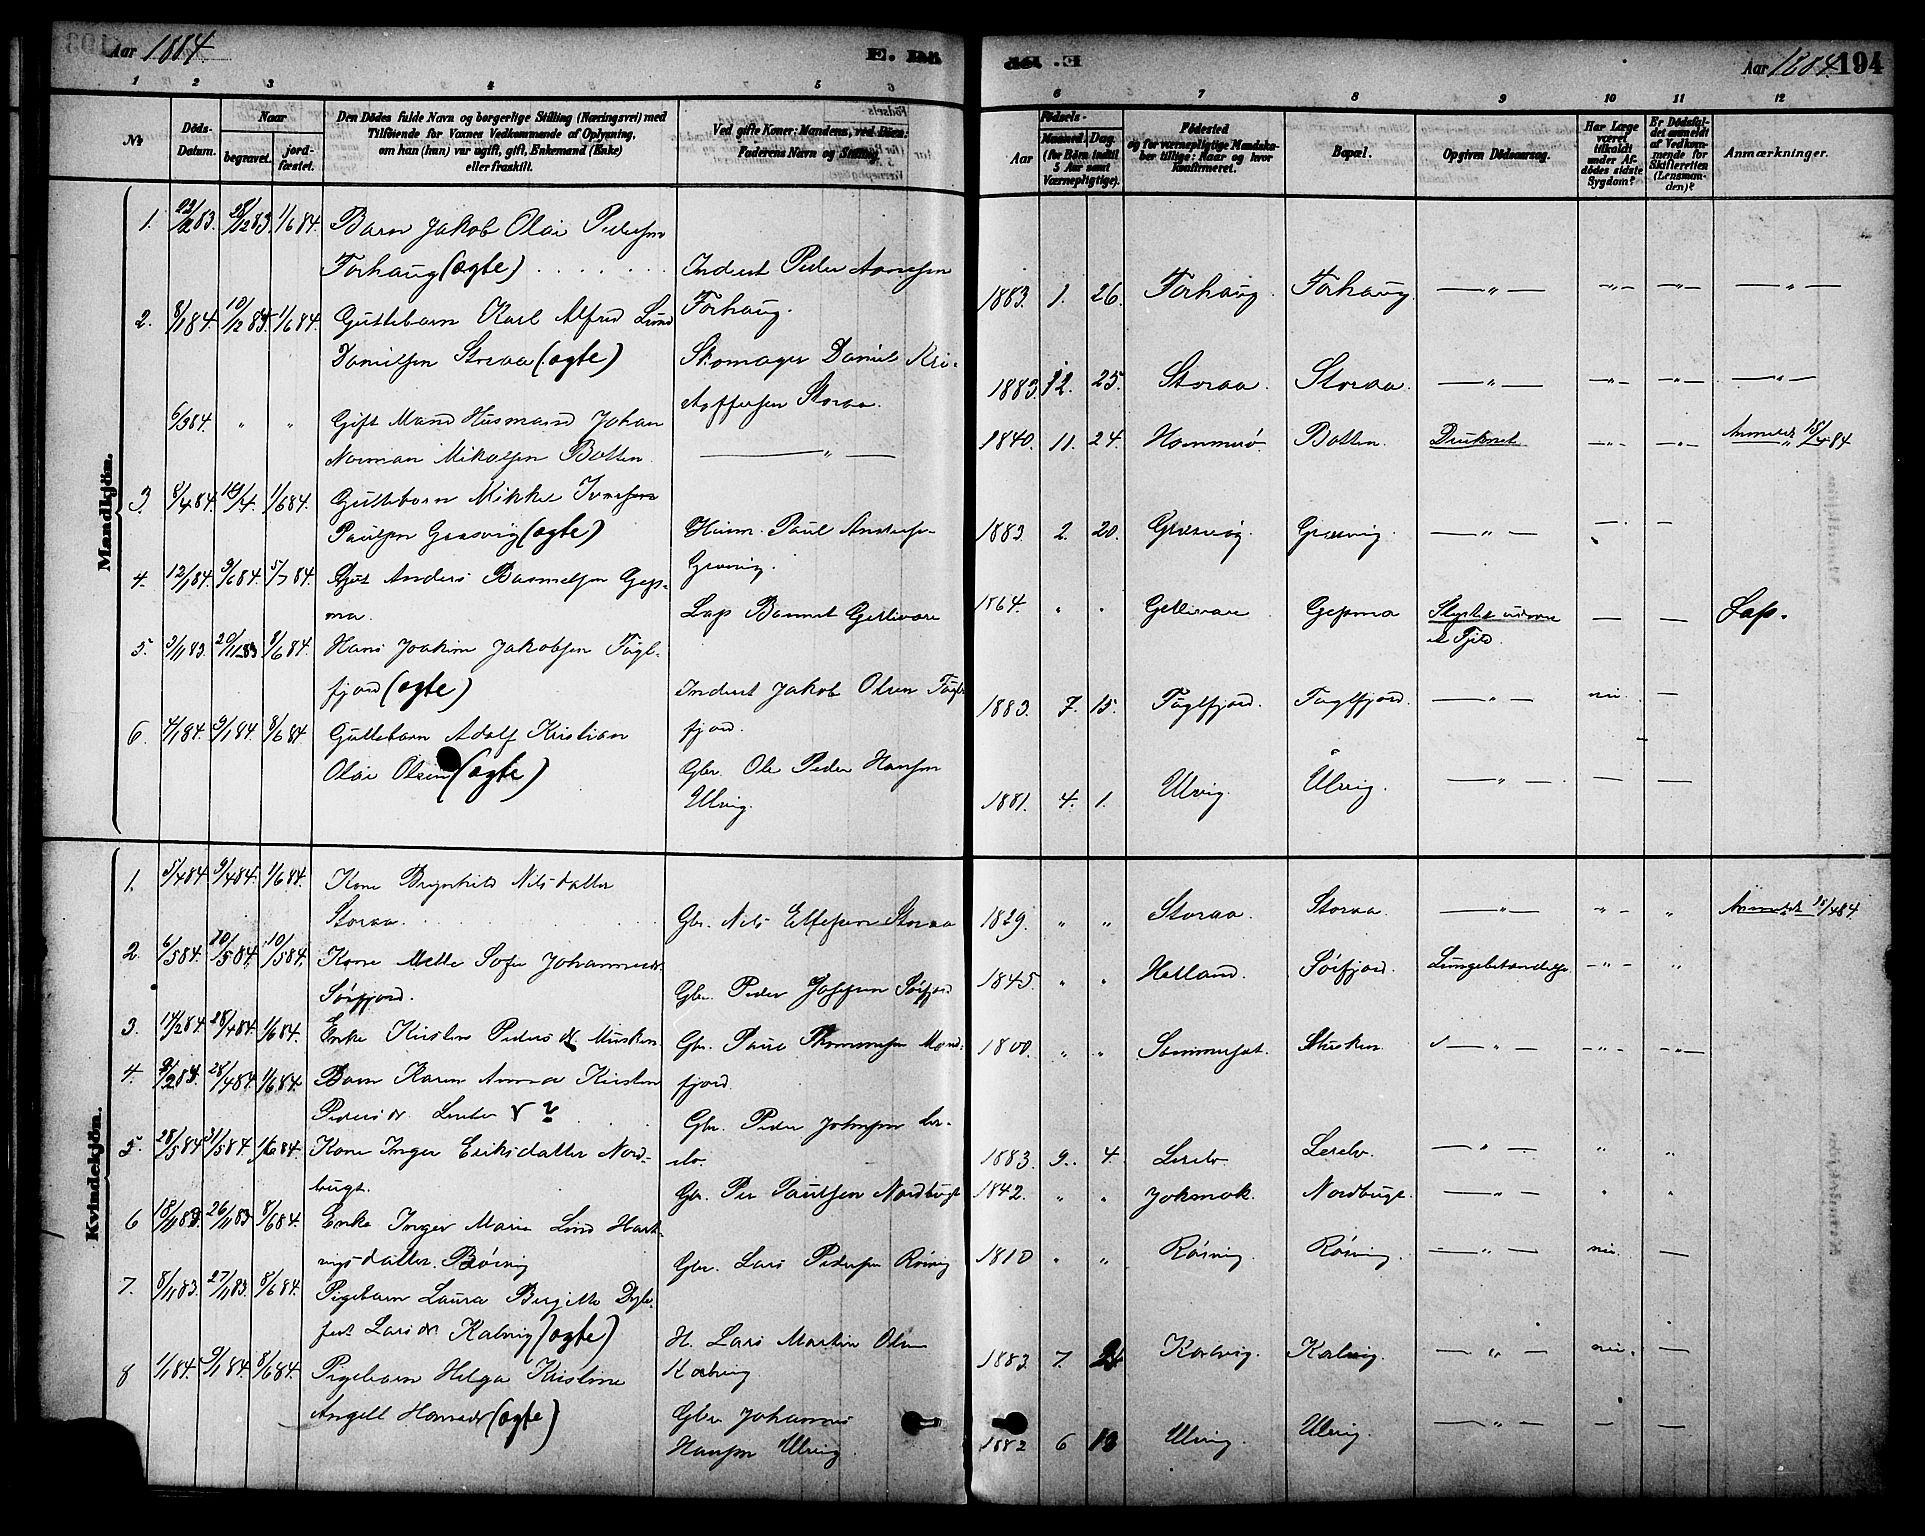 Aar 1884.
Aar 1884. 194
1 2 3 4 5 6
6 7 8 9 10 11 12
No
Döds-Datum.
Naar
begravet.
jord-fæstet.
Den Dödes fulde Navn og borgerlige Stilling (Næringsvei) med
Tilföiende for Voxnes Vedkommende af Oplysning,
om han (hun) var ugift, gift, Enkemand (Enke)
eller fraskilt.
Ved gifte Koner: Mandens, ved Börn:
Faderens Navn og Stilling.
Födsels-
Aar
Maaned. Dag.
(for Börn indtil
5 Aar samt
Værnepligtige).
Födested
og for værnepligtige Mandska-
ber tillige: Naar og hvor
konfirmeret.
Bopæl.
Opgiven Dödsaarsag.
Har Læge
været
tilkaldt
under Af-
dödes sidste
Sygdom?
Er Dödsfal-
det anmeldt
af Vedkom-
mende for
Skifteretten
(Lensman-
den)?
Anmærkninger.
Mandkjön.
1. 1/6 84. Barn Jakob Olai Pedersen
Forhaug (ægte) Inderst Peder Arnesen
Forhaug. 1883. 1. 26. Forhaug. Forhaug. — " — — " — — " — — " —
2. 8/1 84. 1/6 84. Guttebarn Karl Alfred Lund
Danielsen Storaa (ægte) Skomager Daniel Kri-
stoffersen Storaa. 1883. 12. 25. Storaa. Storaa. — " — — " — — " — — " —
6/3 84. " " Gift Mand Husmand Johan
Norman Mikalsen Botten. — " — 1840. 11. 24. Hammerö Botten. Druknet — " — — " — Anmeldt 15/4 84
3. 8/4 84. 1/6 84. Guttebarn Mikkel
Paulsen Græsvig (ægte) Husm. Paul Andersen
Græsvig. 1883. 2. 20. Græsvig. Græsvig. — " — — —
4. 12/1 84. 3/6 84. 5/7 84. Gut Anders
Lap Gellivare 1864. " " Gellivare Gepma — — Lap.
5. 3/11 83. 20/11 83 8/6 84. Hans Joakim Jakobsen Fugl-
fjord (ægte) Inderst Jakob Olsen Fugl-
fjord. 1883. 7. 15. Fuglfjord. Fuglfjord. — " — nei. —
6. 4/1 84. 9/1 84. 8/6 84 Guttebarn Adolf Kristian
Olai Olsen (ægte) Gbr. Ole Peder Hansen
Ulvig. 1881. 4. 1. Ulvig. Ulvig. — " — — —
Kvindekjön.
1. 5/4 84 9/4 84. 1/6 84. Kone Nilsdatter
Storaa. Gbr. Nils Ellefsen Storaa 1829. " " Storaa. Storaa. — " — — " — " Anmeldt 15/4 84
2. 6/5 84. 10/5 84. 10/5 84. Kone Mette Sofie Johannesdr.
Sörfjord. Gbr. Peder Josefsen Sörfjord 1845. " " Hetland. Sörfjord. Lungebetændelse — " — "
3. 14/2 84. 28/4 84. 1/6 84. Enke Kirsten Pedersdr. Musken Gbr. Paul Thommesen Mand-
fjord. 1800. " " Sommerset. Musken — " — — " — — " —
4. 28/4 84 1/6 84. Barn Karen Anna Kirsten
Pedersdr. ? Gbr. Peder Johnsen Ler-
elv. 1883. 9. 4. Lerelv. Lerelv. — " — " "
5. 28/5 84 31/5 84. 1/6 84. Kone Inger Eriksdatter Nord-
bugt. Gbr. Per Paulsen Nordbugt 1842. " " Jokmok. Nordbugt. — " — " "
6 18/11 83. 26/11 83 8/6 84. Enke Inger Marie Lind Hart-
vigsdatter. Rösvig Gbr. Lars Pedersen Rösvig 1810 " " Rösvig. Rösvig. — " — nei —
7. 8/11 83. 27/11 83. 8/6 84. Pigebarn Laura Birgitte
Larsdr. Kalvig (ægte) H. Lars Martin Olsen
Kalvig. 1883. 7. Kalvig. Kalvig. — " — nei. —
8 1/1 84. 9/1 84. 8/6 84. Pigebarn Helga Kristine
Angell Hansdr. (ægte) Gbr. Johannes
Hansen Ulvig. 1882 6 Ulvig. Ulvig. — " — — —